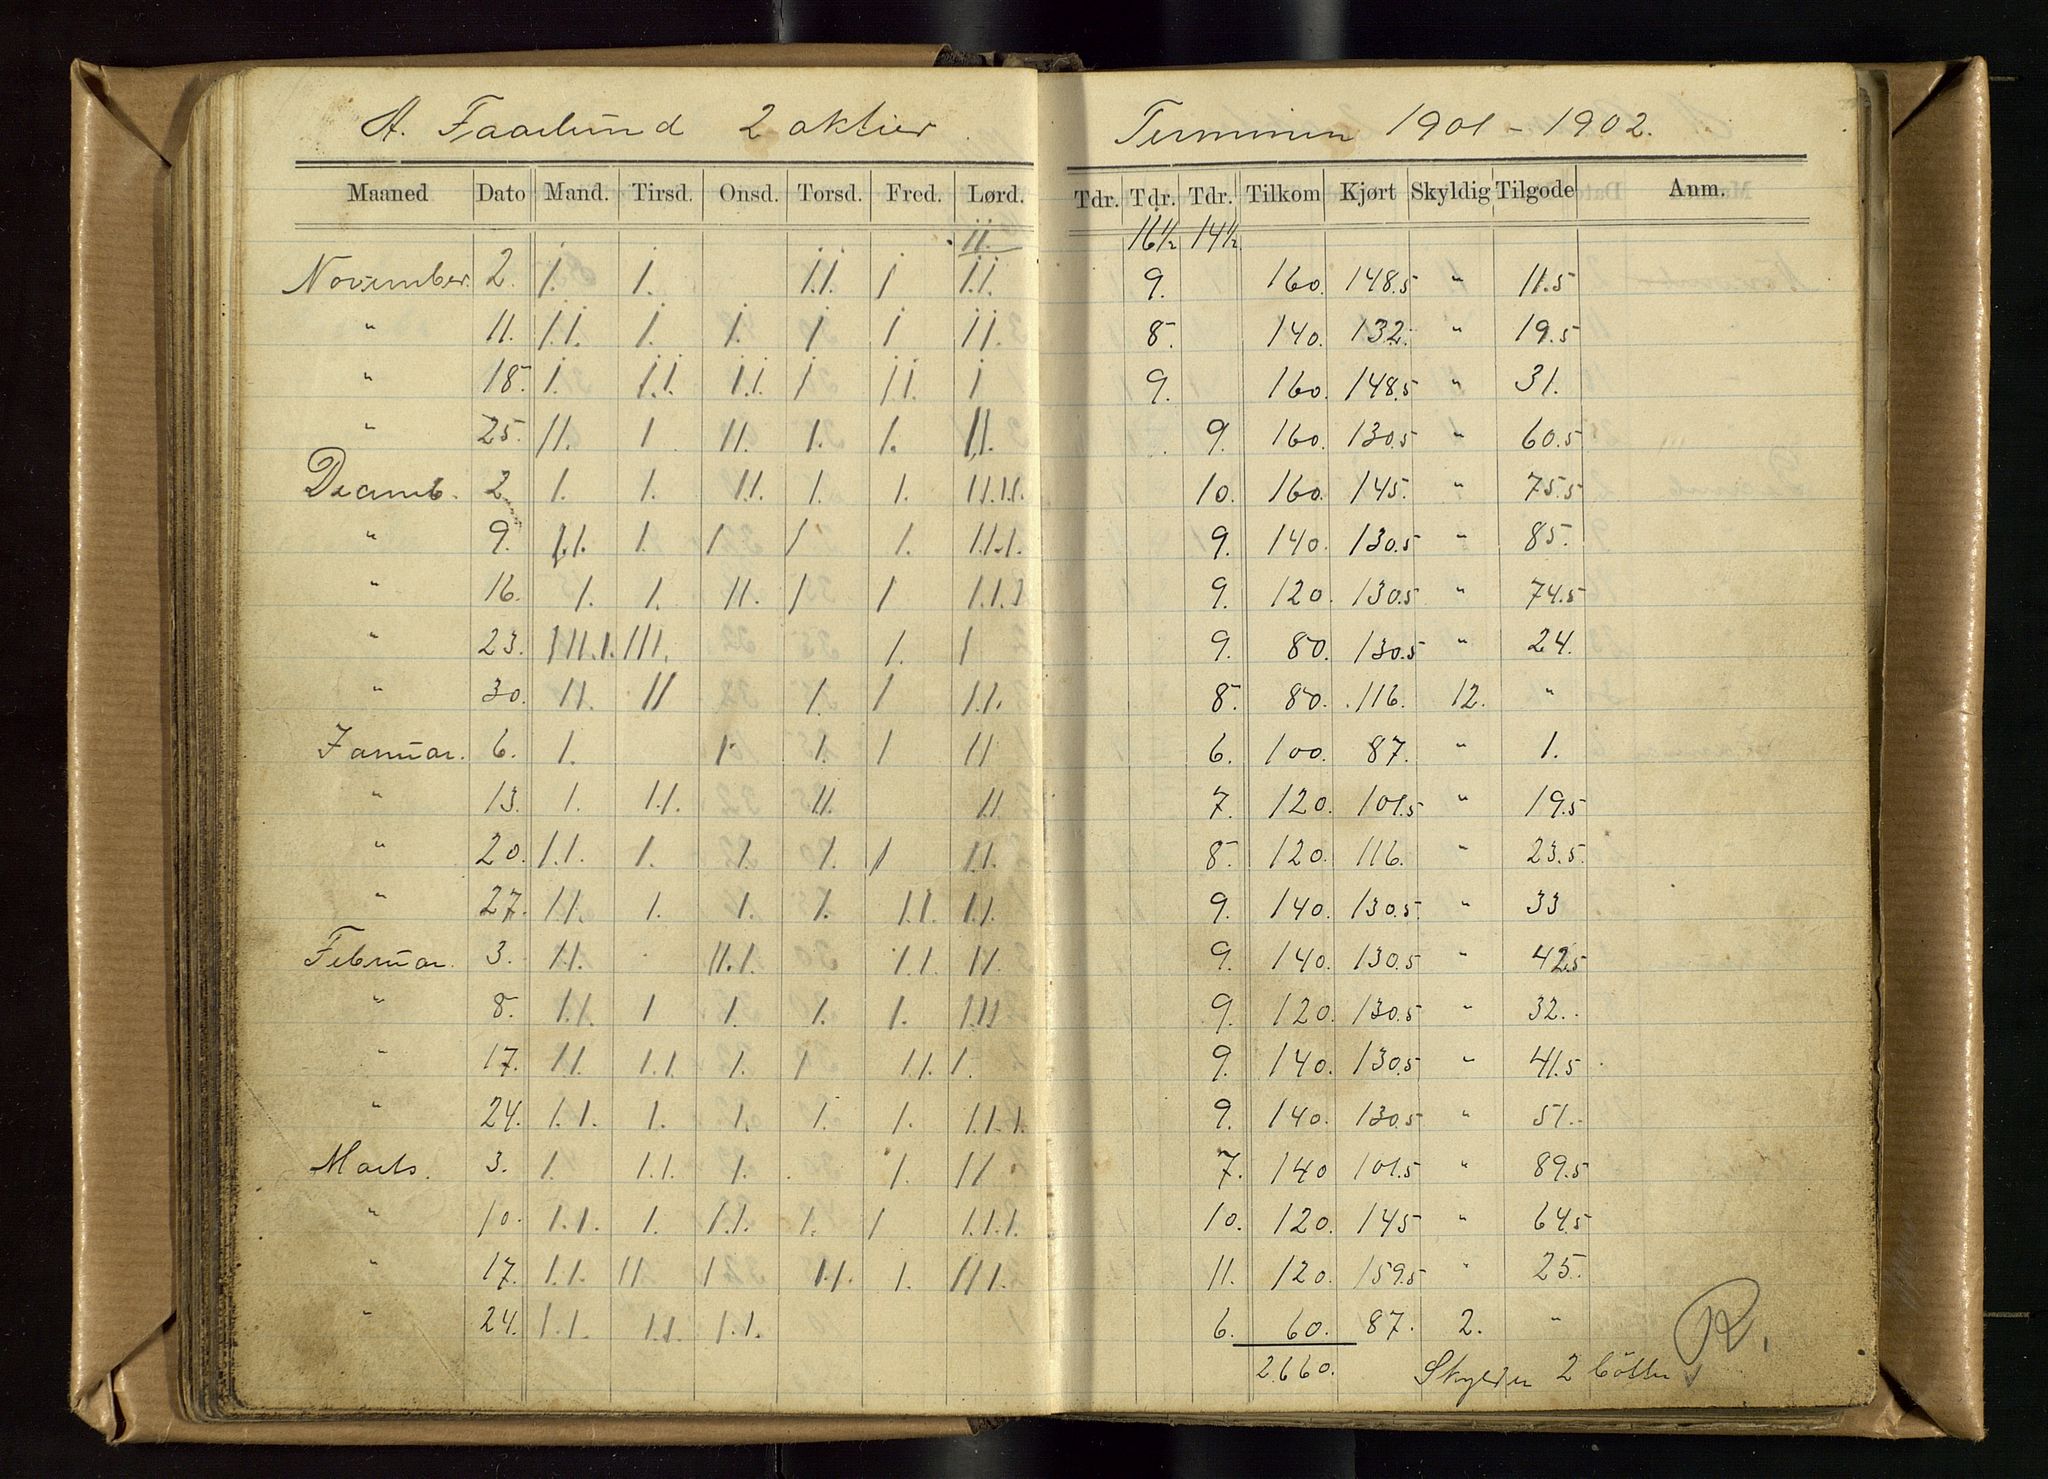 A. Faarlund 2 aktier. Terminen 1901 - 1902.
Maaned Dato Mand. Tirsd. Onsd. Torsd. Fred. Lørd. Tdr. Tdr. Tdr. Tilkom Kjørt Skyldig Tilgode Anm.
11. 16½ 14½
November. 2. 1. 1. 1.1. 1 1.1. 9. 160. 148.5 " 11.5
" 11. 1.1. 1. 1. 1 1 11. 8. 140. 132. " 19.5
" 18. 1. 1.1. 1.1. 1 11. 1 9. 160. 148.5 " 31.
" 25. 11. 1 11. 1. 1. 11. 9. 160. 130.5 " 60.5
Decemb. 2. 1. 1. 11. 1. 1. 11.11. 10. 160. 145. " 75.5
" 9. 1.1. 1. 1 1 1. 1.1.1. 9. 140. 130.5 " 85.
" 16. 1. 1. 11. 1 1 1.1.1 9. 120. 130.5 " 74.5
" 23. 111.1. 111. 1. 1 9. 80. 130.5 " 24.
" 30. 11. 11 1. 1 11. 8. 80. 116. 12. "
Januar. 6. 1. 1 1. 1 11 6. 100. 87. " 1.
" 13. 1. 11. 11. 11 7. 120. 101.5 " 19.5
" 20. 1.1. 1. 1. 1. 1 11. 8. 120. 116. " 23.5
" 27. 11. 1. 1. 1. 11. 11. 9. 140. 130.5 " 33
Februar. 3. 11. 11.1. 11. 11 9. 140. 130.5 " 42.5
" 8. 11. 1 1. 1. 1. 111 9. 120. 130.5 " 32.
" 17. 11. 1.1. 1. 1 11. 1. 9. 140. 130.5 " 41.5
" 24. 1.1. 1. 1. 1. 1. 1.1.1 9. 140. 130.5 " 51.
Marts. 3. 1. 1.1. 1. 1. 11 7. 140 101.5 " 89.5
" 10. 1.1. 1. 1.1. 1. 1 1.1.1. 10. 120. 145 " 64.5
" 17. 1.1. 11 1 11. 1. 111. 11. 120. 159.5 " 25.
" 24. 1.1. 1.1. 1.1. 6. 60. 87. 2. "
2660. Skylder 2 bötter R.